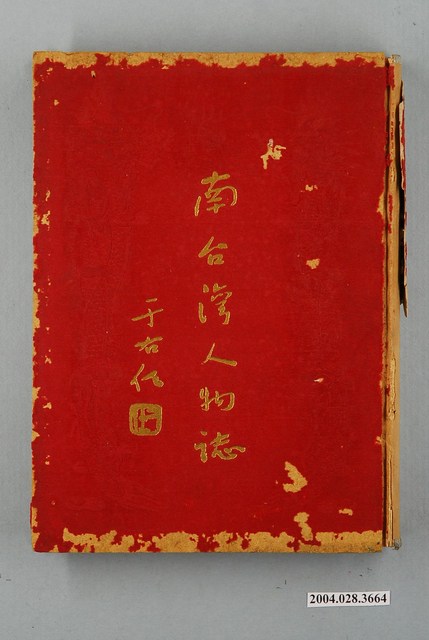 南台灣人物誌
于右任
2004.028.3664